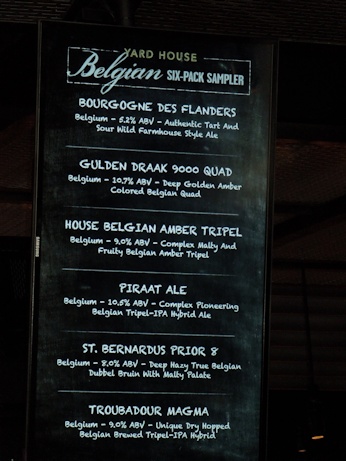 YARD HOUSE
Belgian SIX-PACK SAMPLER
BOURGOGNE DES FLANDERS
Belgium - 5.2% ABV - Authentic Tart And
Sour Wild Farmhouse Style Ale
GULDEN DRAAK 9000 QUAD
Belgium - 10.7% ABV - Deep Golden Amber
Colored Belgian Quad
HOUSE BELGIAN AMBER TRIPEL
Belgium - 9.0% ABV - Complex Malty And
Fruity Belgian Amber Tripel
PIRAAT ALE
Belgium - 10.5% ABV - Complex Pioneering
Belgian Tripel-IPA Hybrid Ale
ST. BERNARDUS PRIOR 8
Belgium - 8.0% ABV - Deep Hazy True Belgian
Dubbel Bruin With Malty Palate
TROUBADOUR MAGMA
Belgium - 9.0% ABV - Unique Dry Hopped
Belgian Brewed Tripel-IPA Hybrid